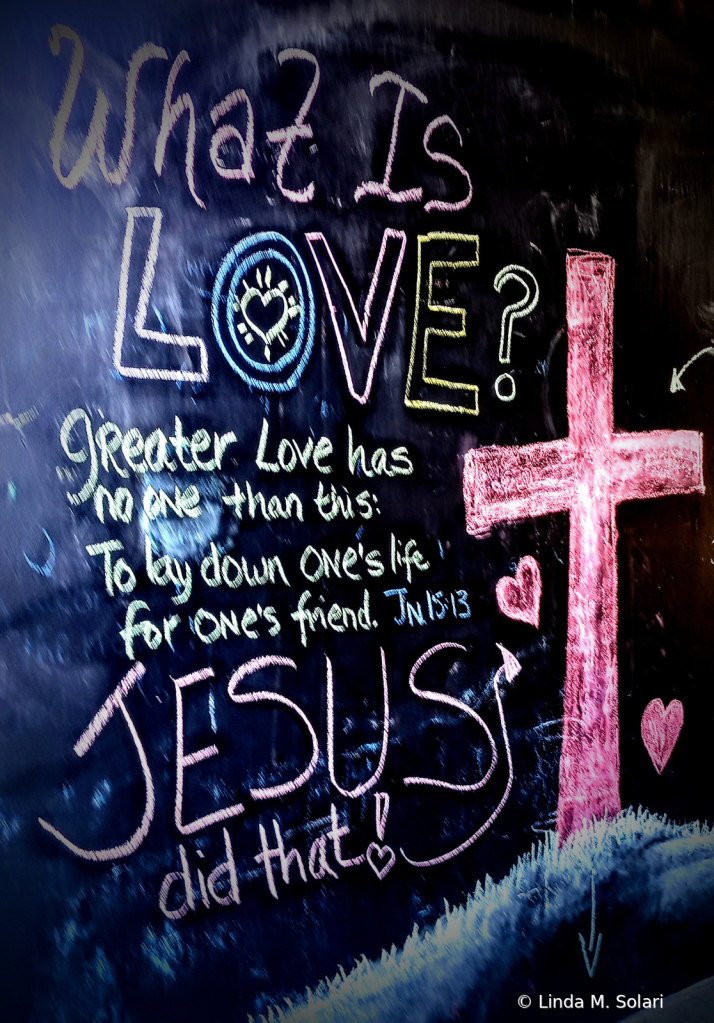 What Is
LOVE?
greater Love has
no one than this:
To lay down ONE'S life
for ONE'S friend. JN 15:13
JESUS
did that!
© Linda M. Solari